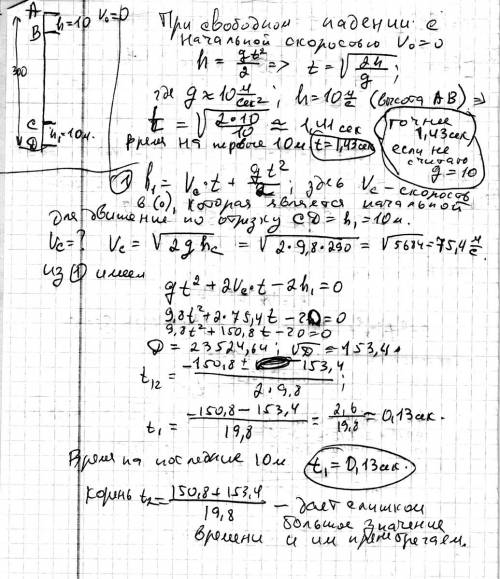 A
B
h=10
V₀=0
300
C
D
h₁=10м.
При свободном падении с
начальной скоростью V₀=0
h = gt²/2 => t = √(2h/g);
где g ≈ 10 м/сек²; h=10 м (высота AB) =>
t = √(2·10/10) ≈ 1,41 сек
точнее
1,43 сек
если не
считать
g=10
время на первые 10м t=1,43сек
① h₁ = Vc·t + gt²/2; здесь Vc – скорость
в (·)C, которая является начальной
для движения по отрезку CD = h₁ = 10м.
Vc=? Vc = √(2ghc) = √(2·9,8·290) = √5684 = 75,4 м/с.
из ① имеем
gt² + 2Vc·t - 2h₁ = 0
9,8t² + 2·75,4t - 20 = 0
9,8t² + 150,8t - 20 = 0
D = 23524,64; √D = 153,4
t₁₂ = (-150,8 ± 153,4)/(2·9,8);
t₁ = (-150,8 - 153,4)/19,8 = 2,6/19,8 ≈ 0,13сек.
Время на последние 10м t₁=0,13сек.
Корень t₂ = (150,8+153,4)/19,8 – даёт слишком
большое значение
времени и им пренебрегаем.